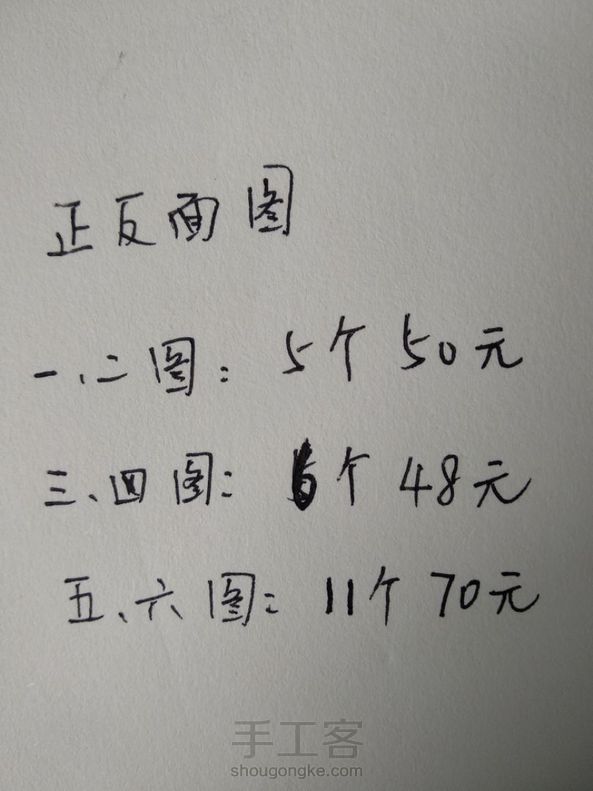 正反面图
一、二图：5个 50元
三、四图：6个 48元
五、六图：11个 70元
手工客
shougongke.com